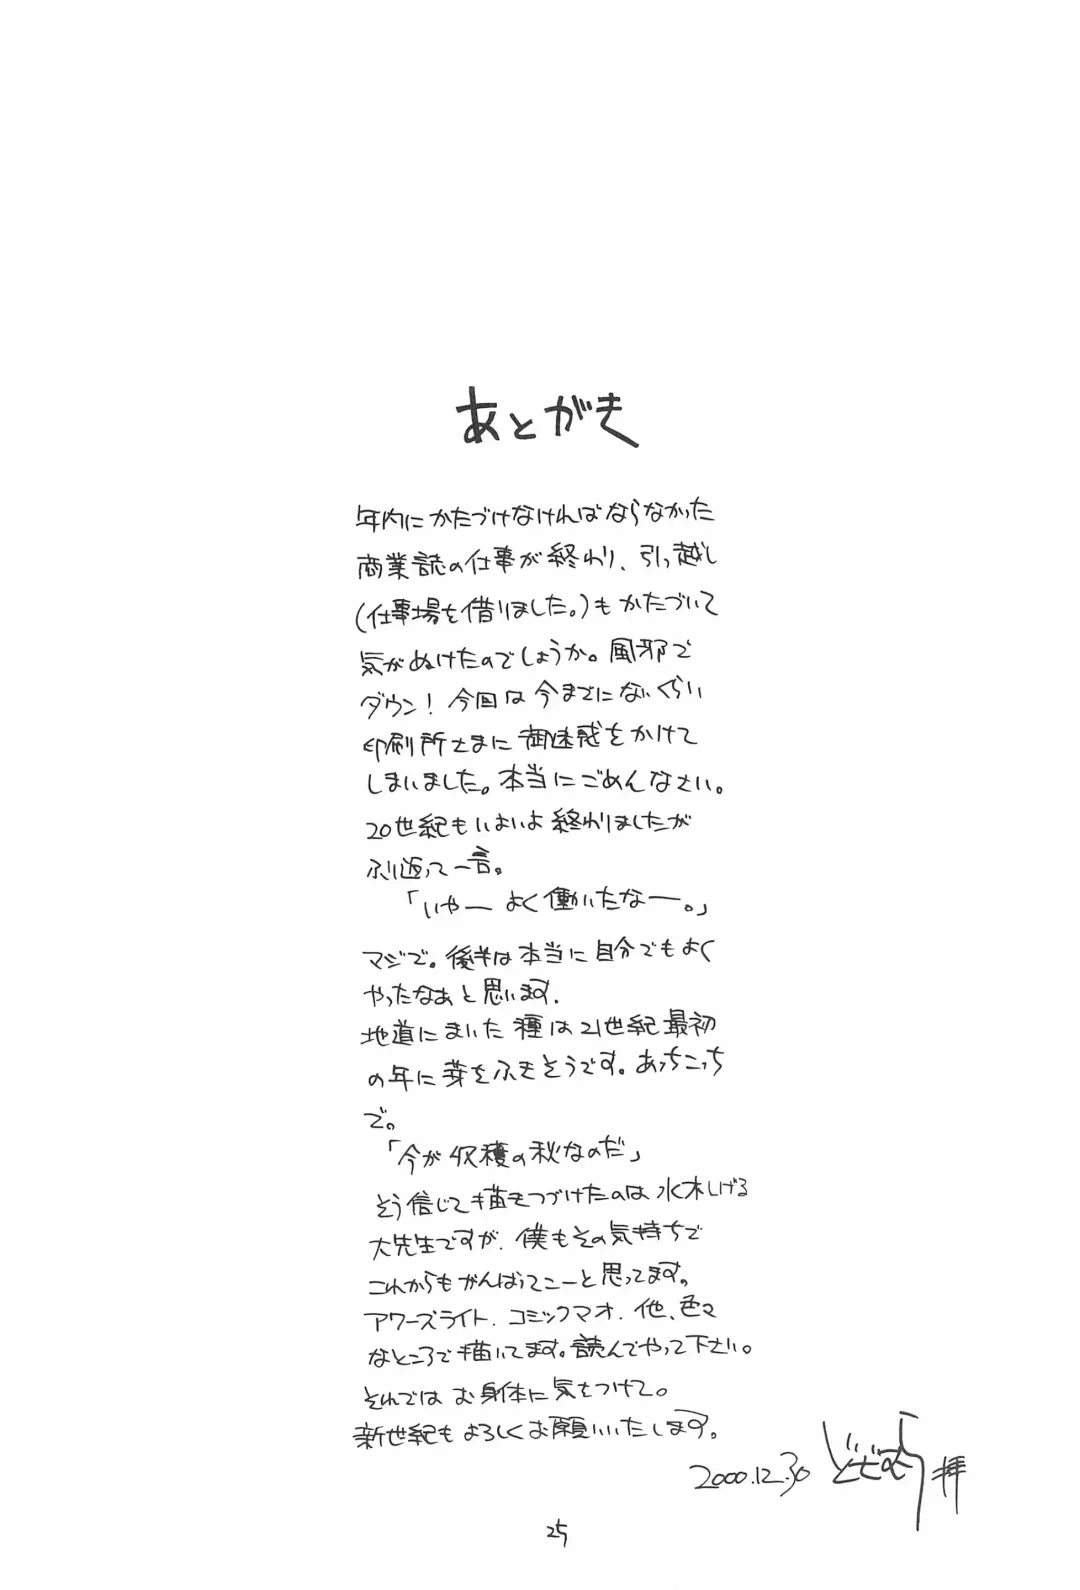 あとがき
年内にかたづけなければならなかった
商業誌の仕事が終わり、引っ越し
(仕事場を借りました。)もかたづいて
気がぬけたのでしょうか。風邪で
ダウン！今回は今までにないぐらい
印刷所さまに御迷惑をかけて
しまいました。本当にごめんなさい。
20世紀もいよいよ終わりましたが
ふり返って一言。
「いやー よく働いたなー。」
マジで。後半は本当に自分でもよく
やったなぁと思います.
地道にまいた種は21世紀最初
の年に芽をふきそうです。あっちこっち
で。
「今が収穫の秋なのだ」
そう信じて描きつづけたのは水木しげる
大先生ですが.僕もその気持ちで
これからもがんばってこーと思ってます。
アワーズライト.コミックマオ.他、色々
なところで描いてます。読んでやって下さい。
それではお身体に気をつけて。
新世紀もよろしくお願いいたします。
2000.12.30 どざむら 拝
25